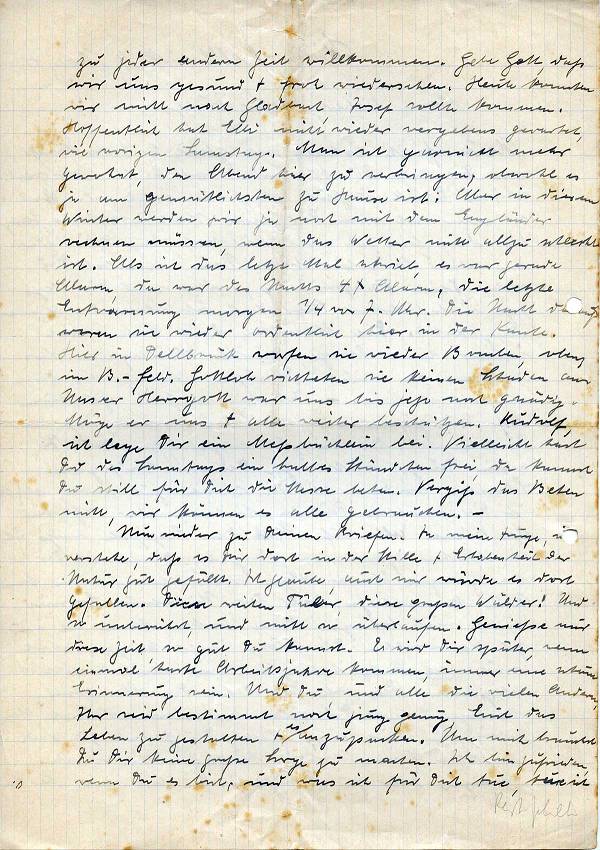 zu jeder andern Zeit willkommen. Gebe Gott daß
wir uns gesund + froh wiedersehen. Heute konnten
wir nicht nach Gladbach, Josef sollte kommen.
Hoffentlich hat Elli nicht wieder vergebens gewartet,
wie vorigen Samstag. Man ist garnicht mehr
gewohnt, den Abend hier zu verbringen, obwohl es
ja am gemütlichsten zu Hause ist. Aber in diesem
Winter werden wir ja noch mit dem Engländer
rechnen müssen, wenn das Wetter nicht allzu schlecht
ist. Als ich das letzte Mal schrieb, es war gerade
Alarm, da war des Nachts 4 x Alarm, die letzte
Entwarnung morgens 1/4 vor 7. Uhr. Die Nacht darauf
waren sie wieder ordentlich hier in der Kante.
Hier in Dellbrück warfen sie wieder Bomben, oben
im B.-Feld. Gottlob richteten sie keinen Schaden an.
Unser Herrgott war uns bis jetzt noch gnädig.
Möge er uns + alle weiter beschützen. Rudolf,
ich lege Dir ein Meßbüchlein bei. Vielleicht hast
Du des Sonntags ein halbes Stündchen frei, da kannst
Du still für Dich die Messe beten. Vergiß das Beten
nicht, wir können es alle gebrauchen. –
Nun wieder zu Deinen Briefen. In meine
verstehe, daß es Dir dort in der Stille + Erhabenheit der
Natur gut gefällt. Ich glaube, auch mir würde es dort
gefallen. Diese weiten Täler, diese großen Wälder! Und
so unberührt, und nicht so überlaufen. Genieße nur
diese Zeit, so gut Du kannst. Es wird Dir später, wenn
einmal harte Arbeitsjahre kommen, immer eine schöne
Erinnerung sein. Und Du und alle die vielen Andern,
Ihr seid bestimmt noch jung genug, Euch das
Leben zu gestalten + es anzupacken. Um mich brauchst
Du Dir keine große Sorge zu machen. Ich bin zufrieden
wenn Du es bist, und was ich für Dich tue, tue ich